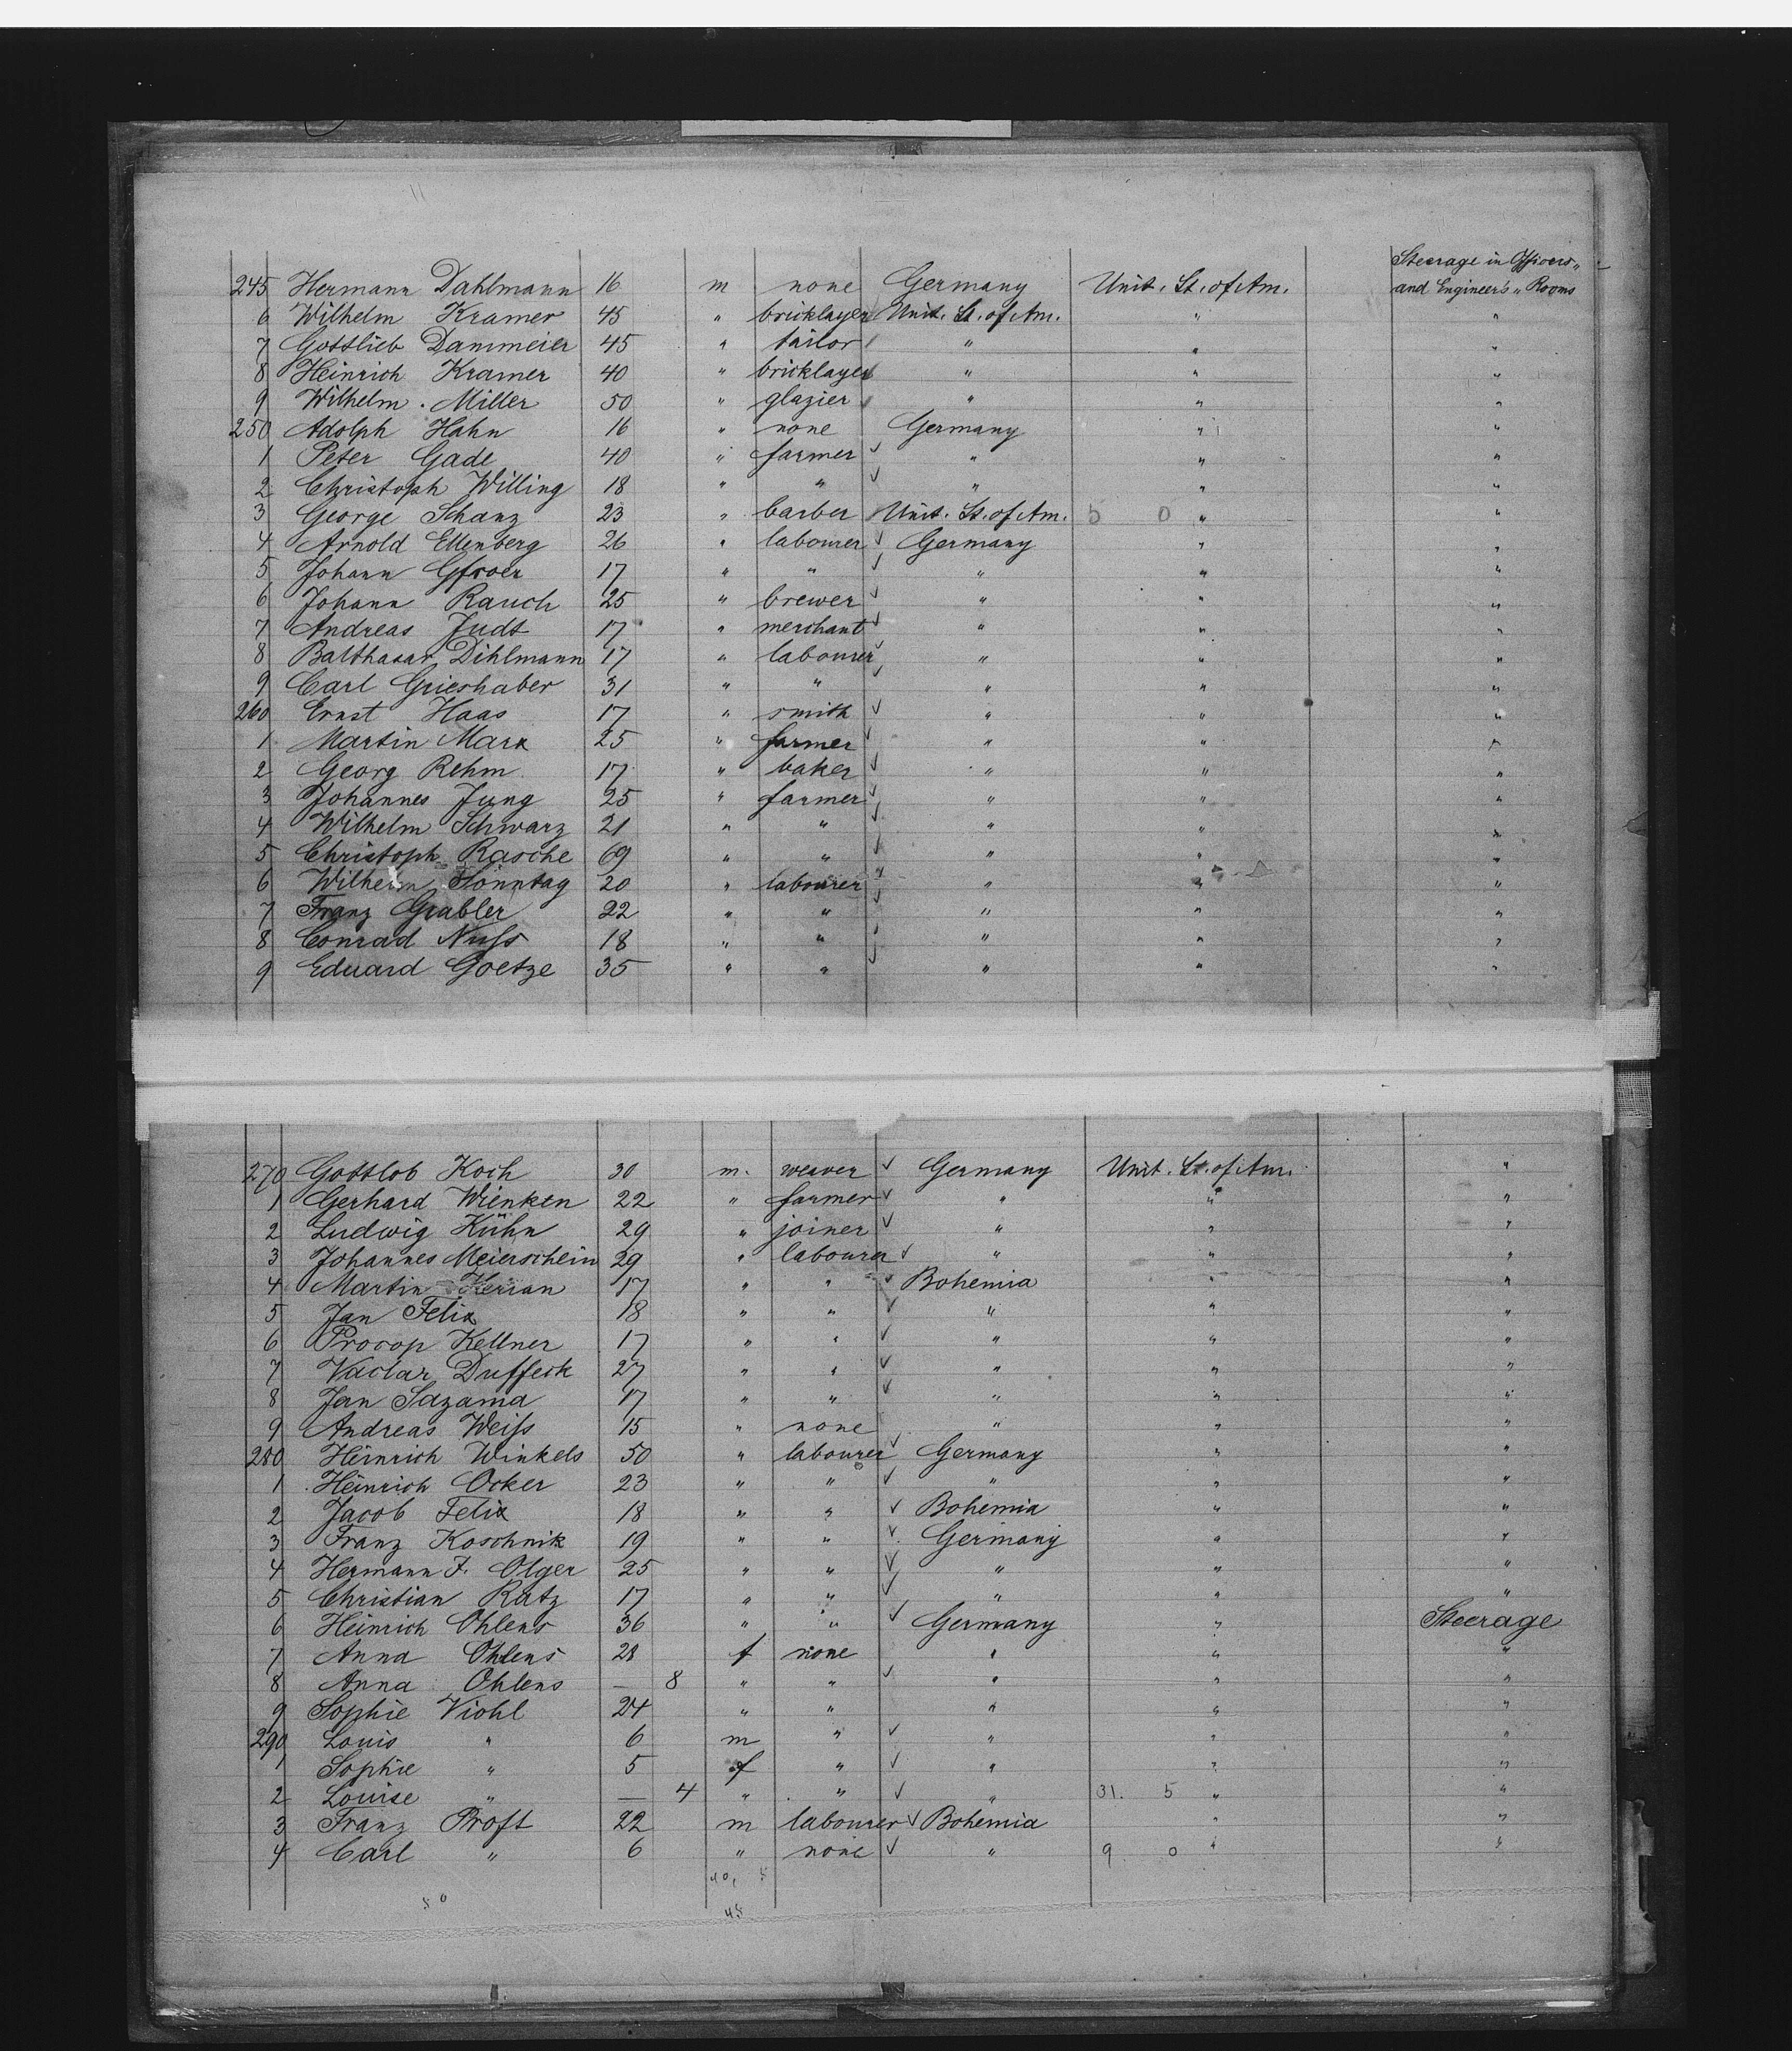 Steerage in Officers„
245 Hermann Dahlmann 16 m none Germany Unit. St. of Am. and Engineer's „ Rooms
6 Wilhelm Kramer 45 " bricklayer Unit. St. of Am. " "
7 Gottlieb Dammeier 45 " tailor " " "
8 Heinrich Kramer 40 " bricklayer " " "
9 Wilhelm . Miller 50 " glazier " " "
250 Adolph Hahn 16 " none Germany " "
1 Peter Gade 40 " farmer ✓ " " "
2 Christoph Willing 18 " " ✓ " " "
3 George Schanz 23 " barber Unit. St. of Am. 5 0 " "
4 Arnold Ellenberg 26 " labourer ✓ Germany " "
5 Johann Gfroer 17 " " ✓ " " "
6 Johann Rauch 25 " brewer ✓ " " "
7 Andreas Judt 17 " merchant ✓ " " "
8 Balthasar Dihlmann 17 " labourer ✓ " " "
9 Carl Grieshaber 31 " " ✓ " " "
260 Ernst Haas 17 " smith ✓ " " "
1 Martin Marx 25 " farmer ✓ " " "
2 Georg Rehm 17 " baker ✓ " " "
3 Johannes Jung 25 " farmer ✓ " " "
4 Wilhelm Schwarz 21 " " ✓ " " "
5 Christoph Rasche 69 " " ✓ " " "
6 Wilhelm Sonntag 20 " labourer ✓ " " "
7 Franz Grabler 22 " " ✓ " " "
8 Conrad Nuſs 18 " " ✓ " " "
9 Eduard Goetze 35 " " ✓ " " "
270 Gottlob Koch 30 m. weaver ✓ Germany Unit. St. of Am. "
1 Gerhard Wienken 22 " farmer ✓ " " "
2 Ludwig Kühn 29 " joiner ✓ " " "
3 Johannes Meierschein 29 " labourer ✓ " " "
4 Martin Kerian 17 " " ✓ Bohemia " "
5 Jan Felix 18 " " ✓ " " "
6 Procop Kellner 17 " " ✓ " " "
7 Vaclar Duffeck 27 " " ✓ " " "
8 Jan Sazama 17 " " ✓ " " "
9 Andreas Weiſs 15 " none " " "
280 Heinrich Winkels 50 " labourer ✓ Germany " "
1 Heinrich Ocker 23 " " ✓ " " "
2 Jacob Felix 18 " " ✓ Bohemia " "
3 Franz Koschnik 19 " " ✓ Germany " "
4 Hermann F. Olger 25 " " ✓ " " "
5 Christian Ratz 17 " " ✓ " " "
6 Heinrich Ohlens 36 " " ✓ Germany " Steerage
7 Anna Ohlens 28 f none " " "
8 Anna Ohlens — 8 " " ✓ " " "
9 Sophie Viohl 24 " " " " "
290 Louis " 6 m " ✓ " " "
1 Sophie " 5 f " ✓ " " "
2 Louise " — 4 " " ✓ " 31. 5 " "
3 Franz Proft 22 m labourer ✓ Bohemia " "
4 Carl " 6 " none ✓ " 9 0 " "
40, 5
50
45